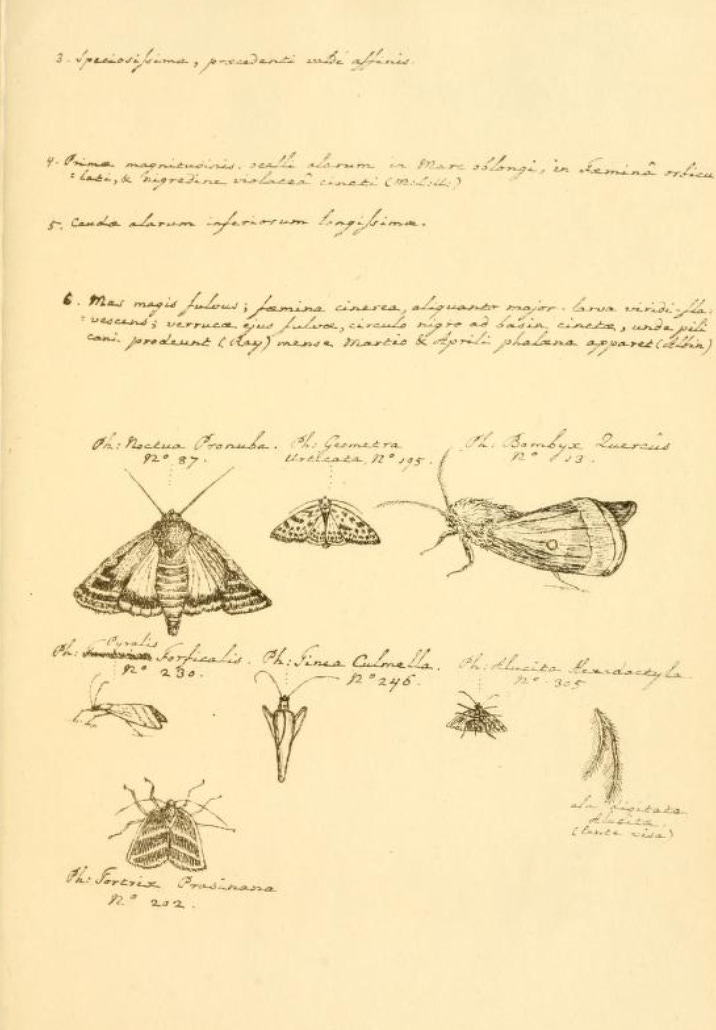 3. Speciosissima, præcedenti valdè affinis.
4. Primæ magnitudinis. ocelli alarum in Mare oblongi, in Fæminâ orbicu
=lati, & nigredine violaceâ cincti
5. Caudæ alarum inferiorum longissimæ.
6. Mas magis fulvus; fæmina cinerea, aliquanto major. larva viridi-fla=
=vescens; verrucæ ejus fulvæ, circulo nigro ad basin cinctæ, unde pili
cani prodeunt (Ray) mense Martio & Aprili phalæna apparet (Albin)
Ph: Noctua Pronuba.
No 87.
Ph: Geometra
Urticata, No 195.
Ph: Bombyx Quercûs
No 13.
Pyralis
Ph: Forficalis.
No 230.
Ph: Tinea Culmella.
No 246.
Ph: Alucita Hexadactyla
No 305
ala digitata
Alucitæ.
(lente visa)
Ph: Tortrix Prasinana
No 202.